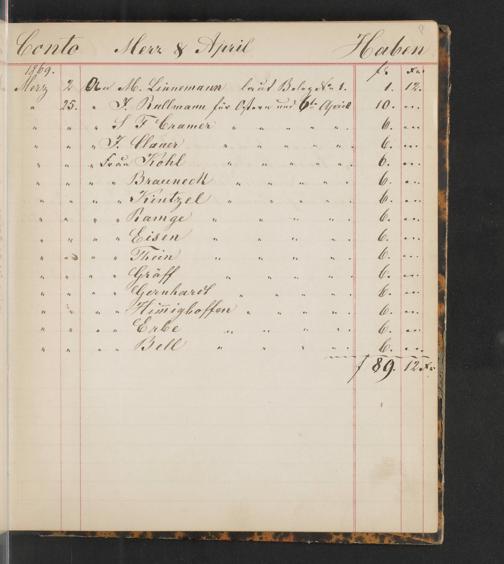 Conto Merz & April Haben
1869. fr. Xr.
Merz 2 An M. Linnemann laut Beleg No 1. 1. 12.
" 25. " J. Bullmann für Ostern und 6te April 10. ...
" " " S F Cramer " " " " 6. ...
" " " J. Clauer " " " " 6. ...
" " " Frau Kohl " " " 6. ...
" " " " Brauneck " " " " 6. ...
" " " " Küntzel " " " " 6. ...
" " " " Ramge " " " " 6. ...
" " " " Eisen " " " " 6. ...
" " " " Thein " " " " 6. ...
" " " " Gräff " " " " 6. ...
" " " " Gernhardt " " " " 6. ...
" " " " Himmighoffen " " " " 6. ...
" " " " Erbe " " " " 6. ...
" " " " Bell " " " " 6. ...
f 89. 12 Xr